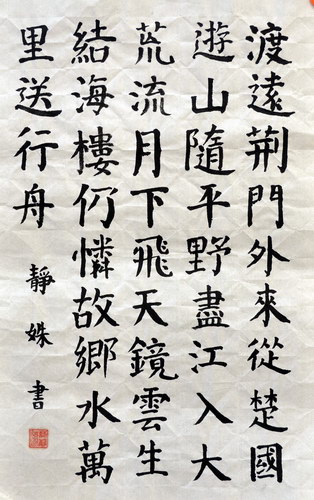 渡遠荆門外來從楚國
遊山隨平野盡江入大
荒流月下飛天鏡雲生
結海樓仍憐故鄉水萬
里送行舟
靜姝書